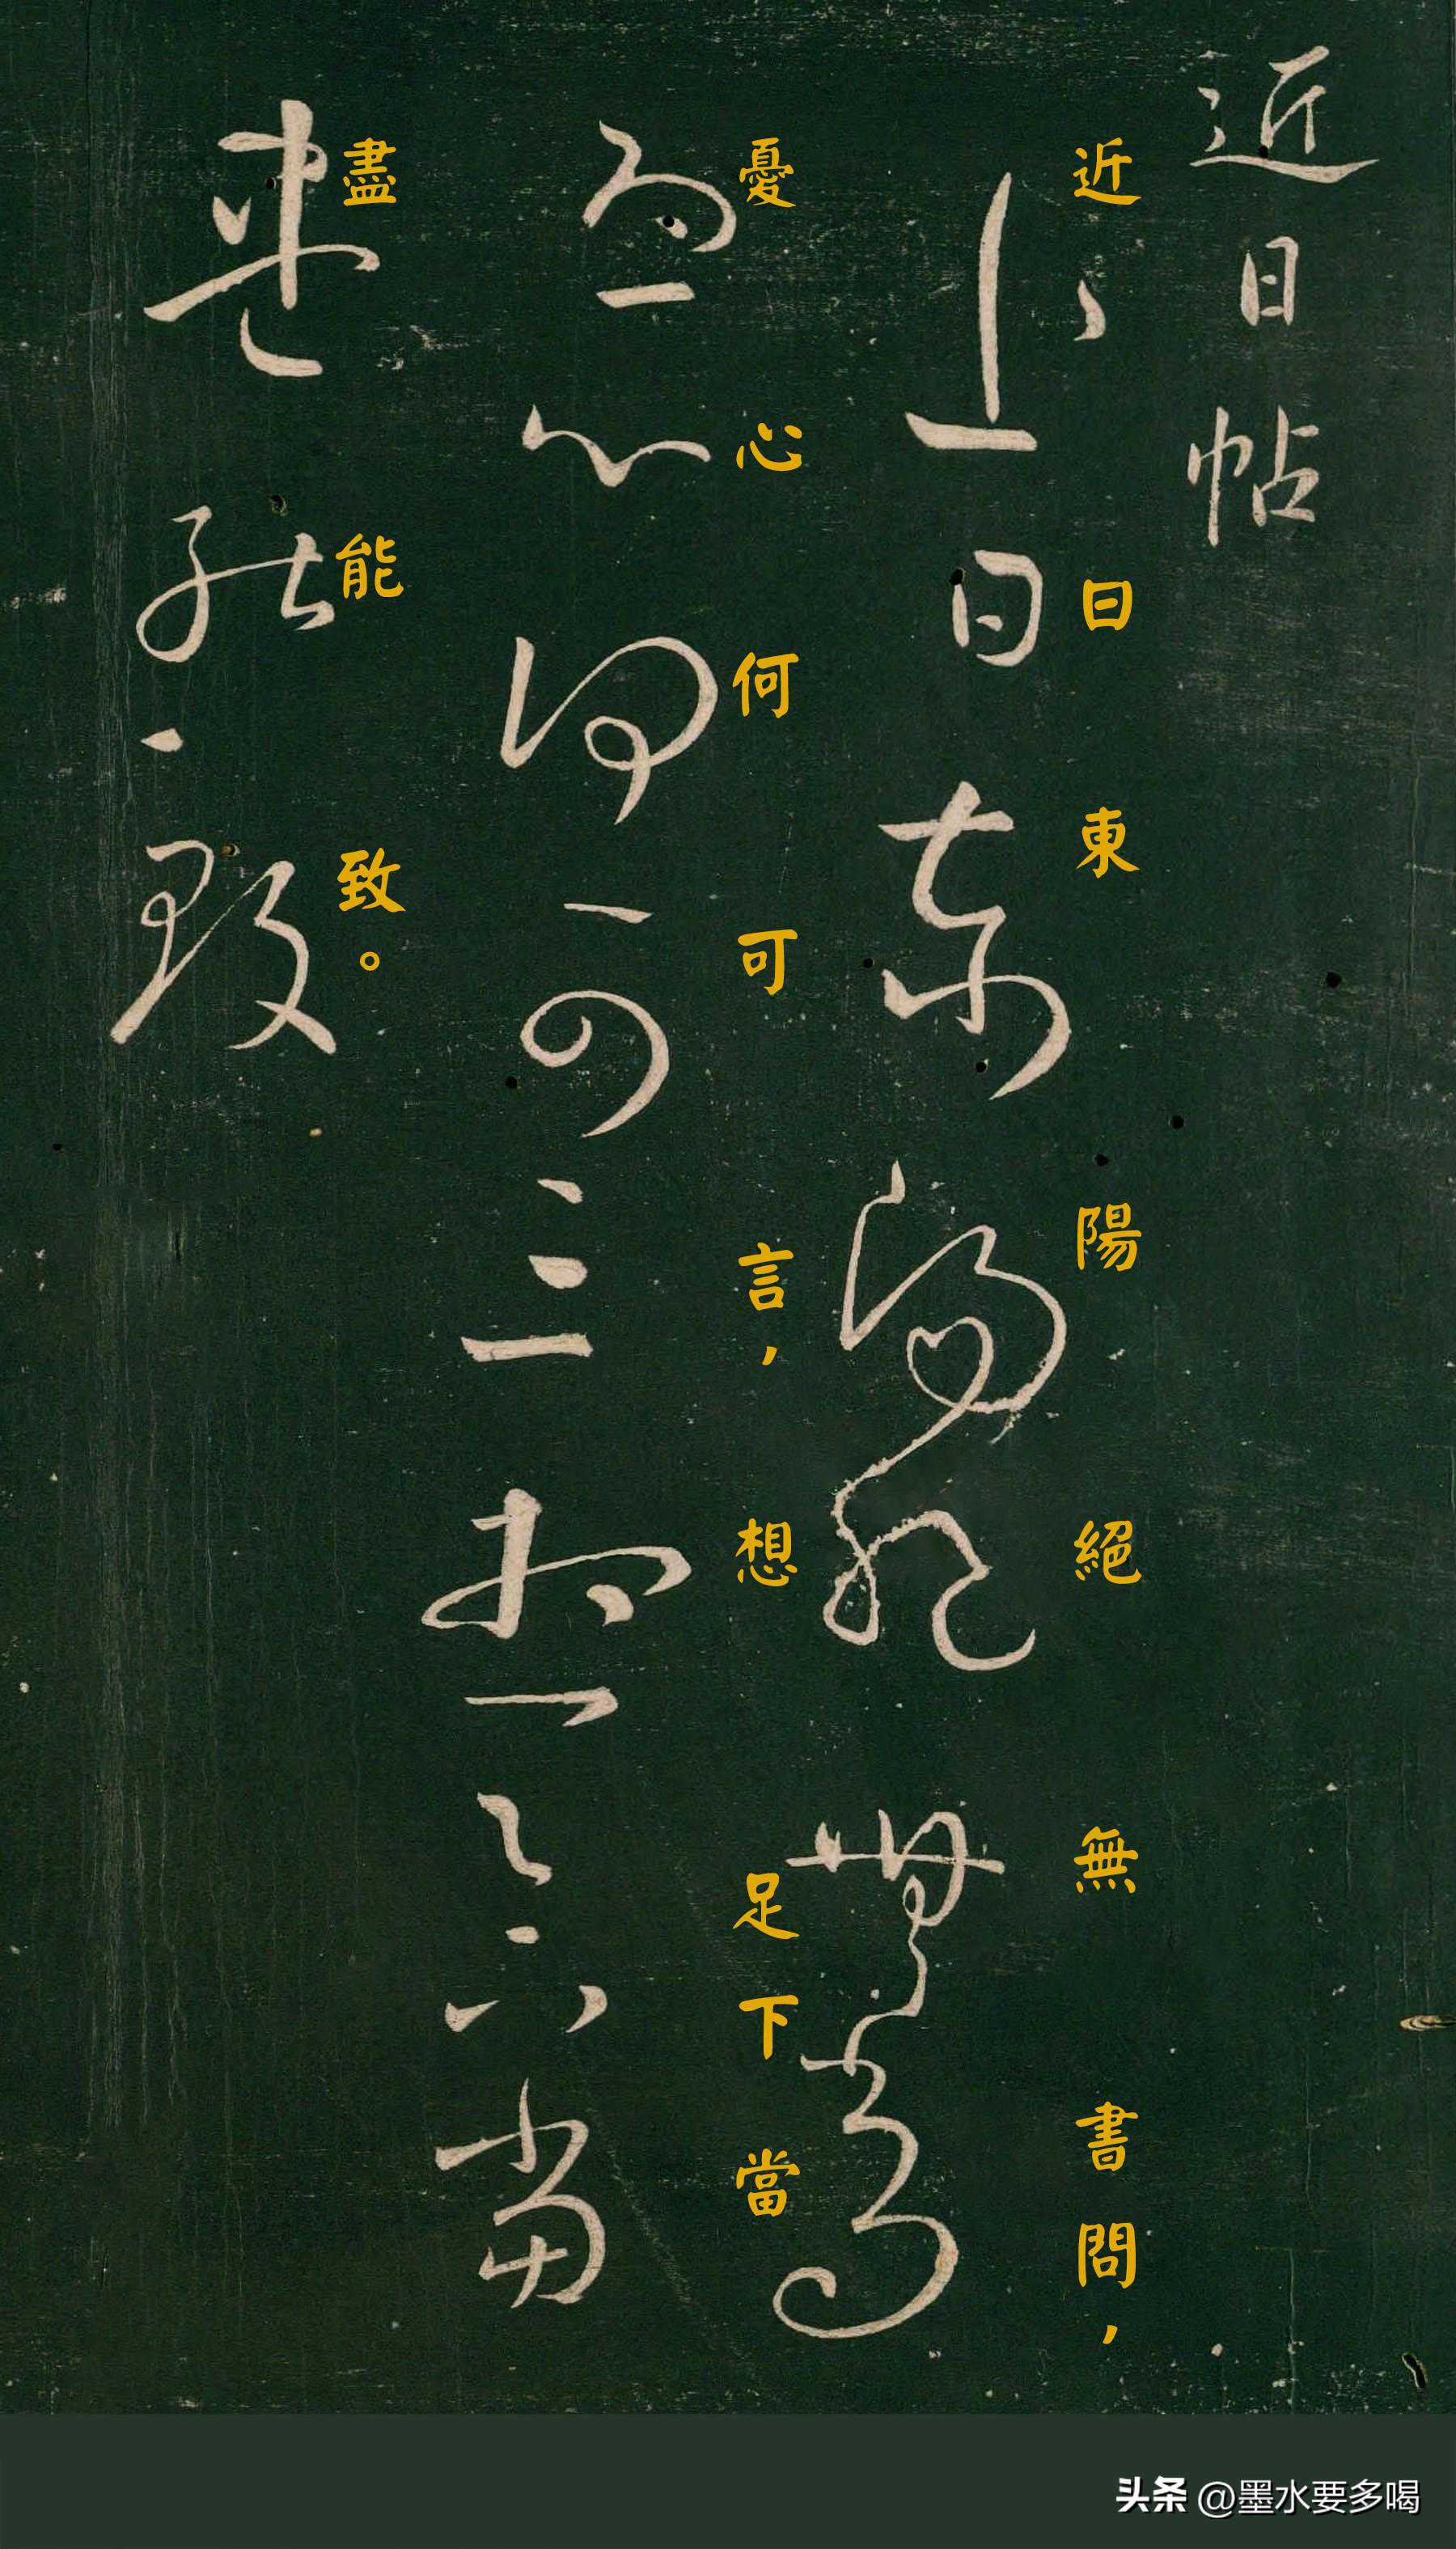 近日帖
近日東陽絕無書問，
憂心何可言，想足下當
盡能致。
头条 @墨水要多喝